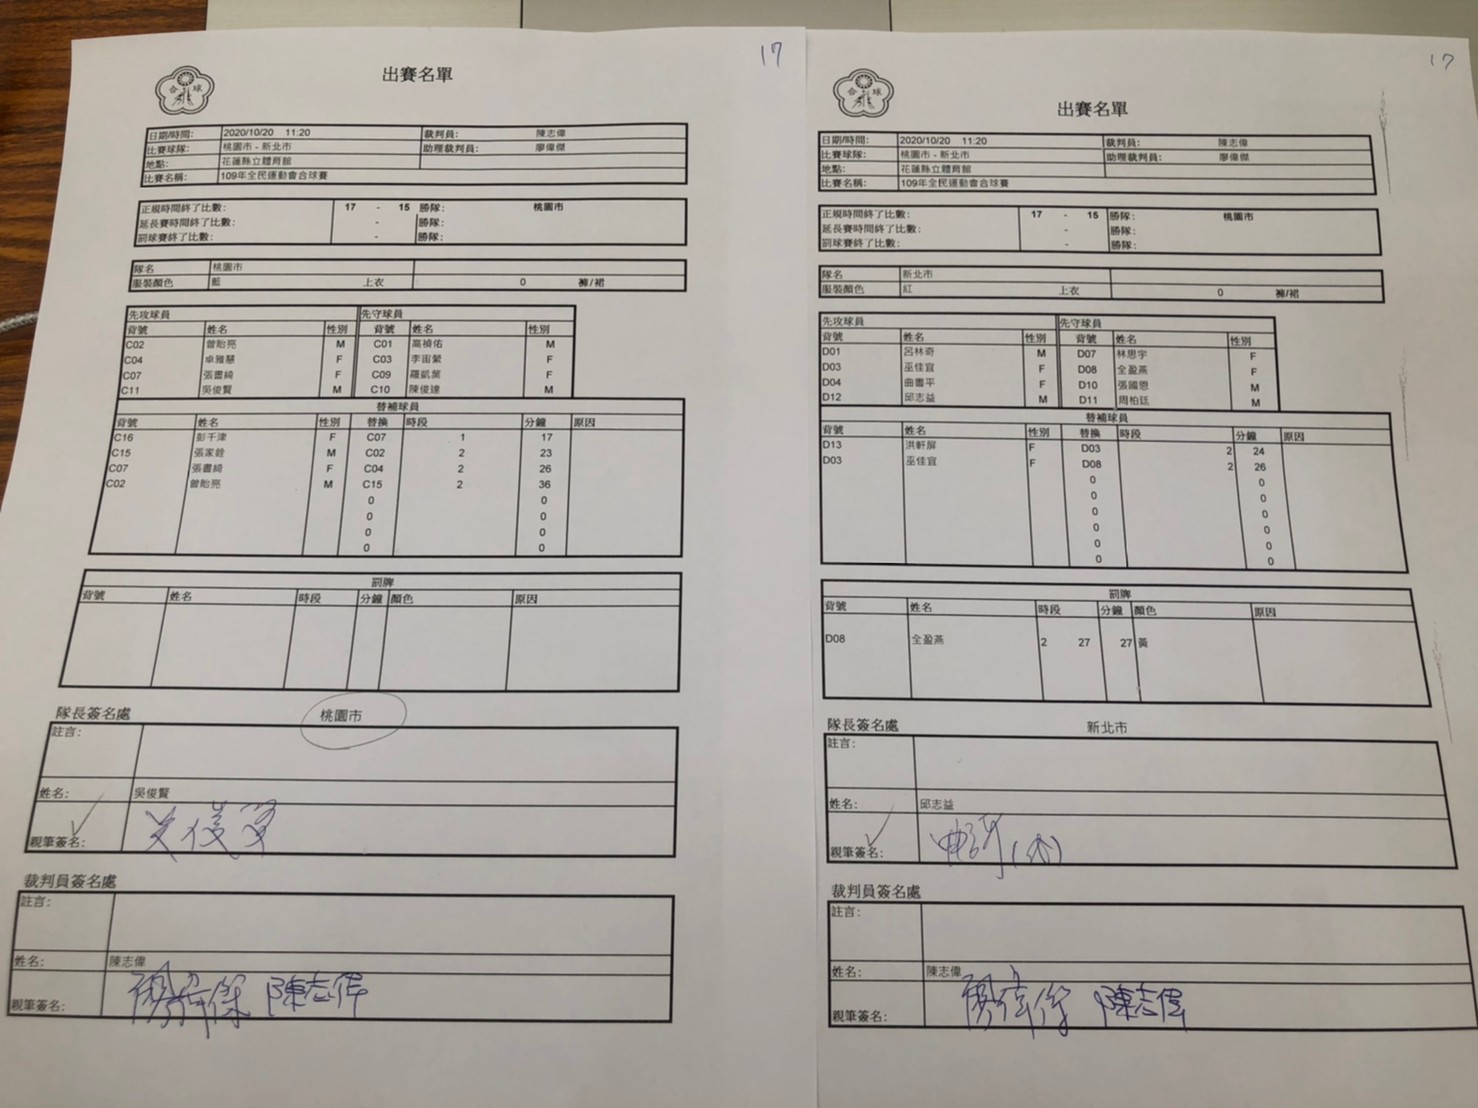 17
出賽名單
合球
日期/時間: 2020/10/20 11:20 裁判員: 陳志偉
比賽球隊: 桃園市 - 新北市 助理裁判員: 廖偉傑
地點: 花蓮縣立體育館
比賽名稱: 109年全民運動會合球賽
正規時間終了比數: 17 - 15 勝隊: 桃園市
延長賽時間終了比數: - 勝隊:
罰球賽終了比數: - 勝隊:
隊名 桃園市
服裝顏色 藍 上衣 0 褲/裙
先攻球員 先守球員
背號 姓名 性別 背號 姓名 性別
C02 曾貽亮 M C01 高禎佑 M
C04 卓雅慧 F C03 李宙縈 F
C07 張書綺 F C09 羅凱葉 F
C11 吳俊賢 M C10 陳俊達 M
替補球員
背號 姓名 性別 替換 時段 分鐘 原因
C16 彭千津 F C07 1 17
C15 張家銓 M C02 2 23
C07 張書綺 F C04 2 26
C02 曾貽亮 M C15 2 36
0 0
0 0
0 0
0 0
罰牌
背號 姓名 時段 分鐘 顏色 原因
隊長簽名處 桃園市
註言:
姓名: 吳俊賢
親筆簽名: 吳俊賢
裁判員簽名處
註言:
姓名: 陳志偉
親筆簽名: 廖偉傑 陳志偉
17
出賽名單
合球
日期/時間: 2020/10/20 11:20 裁判員: 陳志偉
比賽球隊: 桃園市 - 新北市 助理裁判員: 廖偉傑
地點: 花蓮縣立體育館
比賽名稱: 109年全民運動會合球賽
正規時間終了比數: 17 - 15 勝隊: 桃園市
延長賽時間終了比數: - 勝隊:
罰球賽終了比數: - 勝隊:
隊名 新北市
服裝顏色 紅 上衣 0 褲/裙
先攻球員 先守球員
背號 姓名 性別 背號 姓名 性別
D01 呂林奇 M D07 林思宇 F
D03 巫佳宜 F D08 全盈燕 F
D04 曲書平 F D10 張國恩 M
D12 邱志益 M D11 周柏廷 M
替補球員
背號 姓名 性別 替換 時段 分鐘 原因
D13 洪軒屏 F D03 2 24
D03 巫佳宜 F D08 2 26
0 0
0 0
0 0
0 0
0 0
0 0
罰牌
背號 姓名 時段 分鐘 顏色 原因
D08 全盈燕 2 27 27 黃
隊長簽名處 新北市
註言:
姓名: 邱志益
親筆簽名: (代)
裁判員簽名處
註言:
姓名: 陳志偉
親筆簽名: 廖偉傑 陳志偉